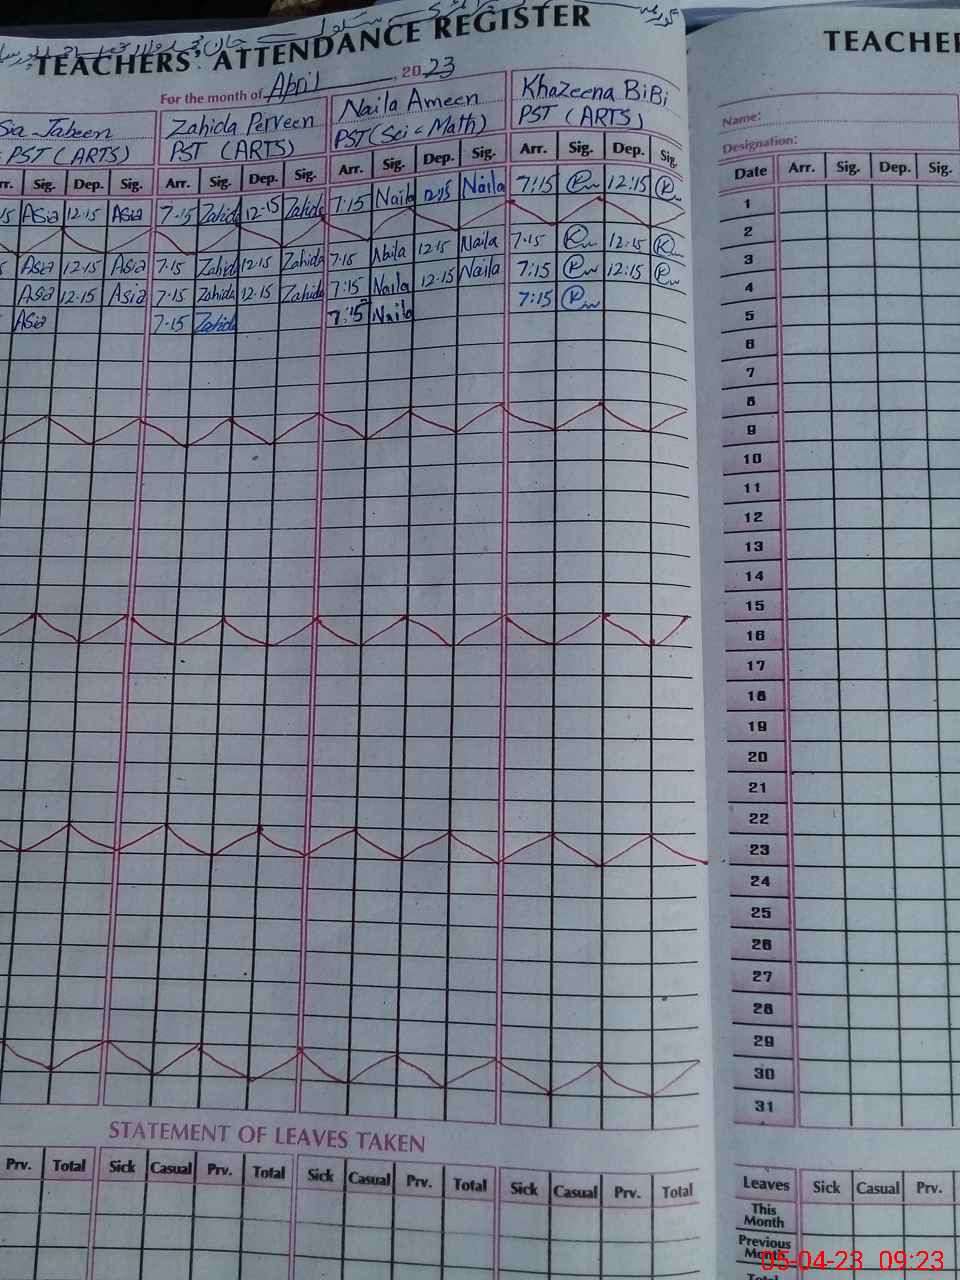 TEACHERS' ATTENDANCE REGISTER
For the month of April, 2023
Jabeen Zahida Perveen Naila Ameen Khazeena BiBi
PST (ARTS) PST (ARTS) PST (Sci & Math) PST (ARTS)
Sig. Dep. Sig. Arr. Sig. Dep. Sig. Arr. Sig. Dep. Sig. Arr. Sig. Dep. Sig.
Asia 12.15 Asia 7.15 Zahida 12.15 Zahida 7:15 Naila 12:15 Naila 7:15 12:15
Asia 12.15 Asia 7.15 Zahida 12.15 Zahida 7.15 Naila 12.15 Naila 7.15 12.15
Asia 12.15 Asia 7.15 Zahida 12.15 Zahida 7:15 Naila 12.15 Naila 7:15 12:15
Asia 7.15 Zahida 7:15 Naila 7:15
STATEMENT OF LEAVES TAKEN
Prv. Total Sick Casual Prv. Total Sick Casual Prv. Total Sick Casual Prv. Total
TEACHE
Name:
Designation:
Date Arr. Sig. Dep. Sig.
1
2
3
4
5
6
7
8
9
10
11
12
13
14
15
16
17
18
19
20
21
22
23
24
25
26
27
28
29
30
31
Leaves Sick Casual Prv.
This
Month
Previous
Month
Total
05-04-23 09:23